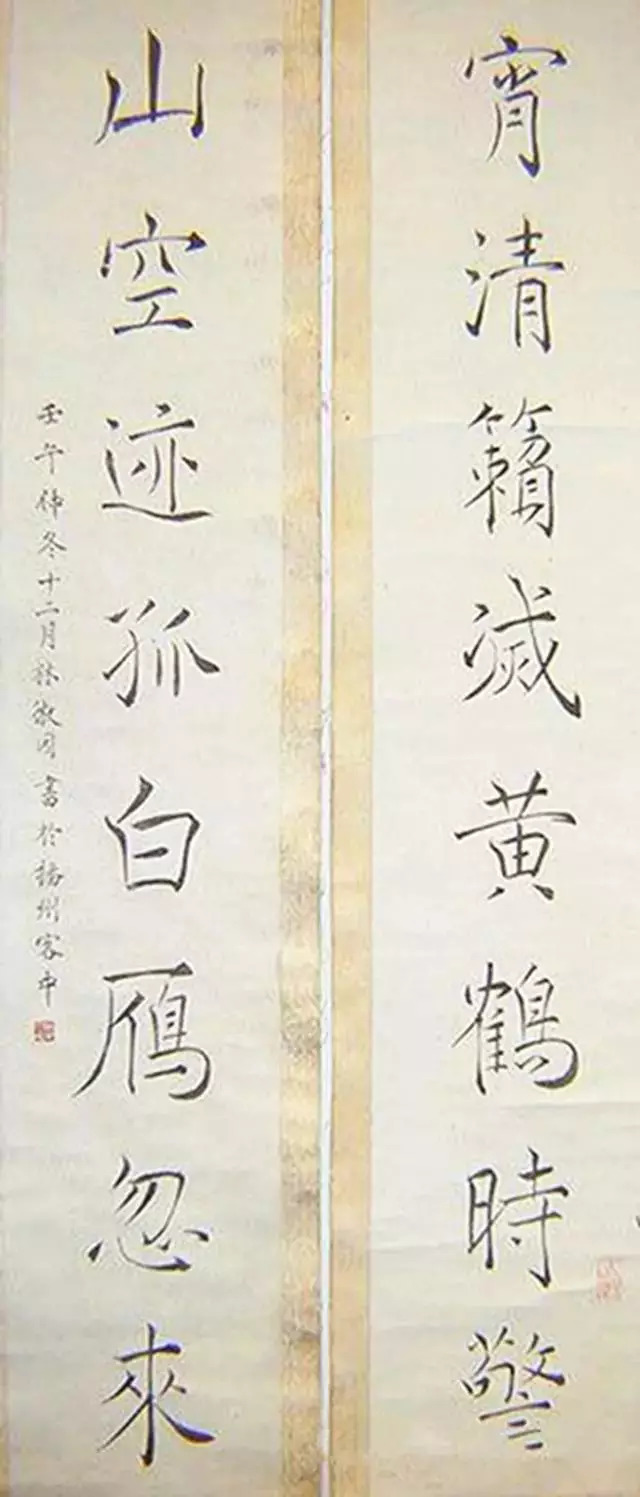 宵清籟滅黄鶴時警
山空迹孤白鴈忽來
壬午冬十二月林書於揚州客中